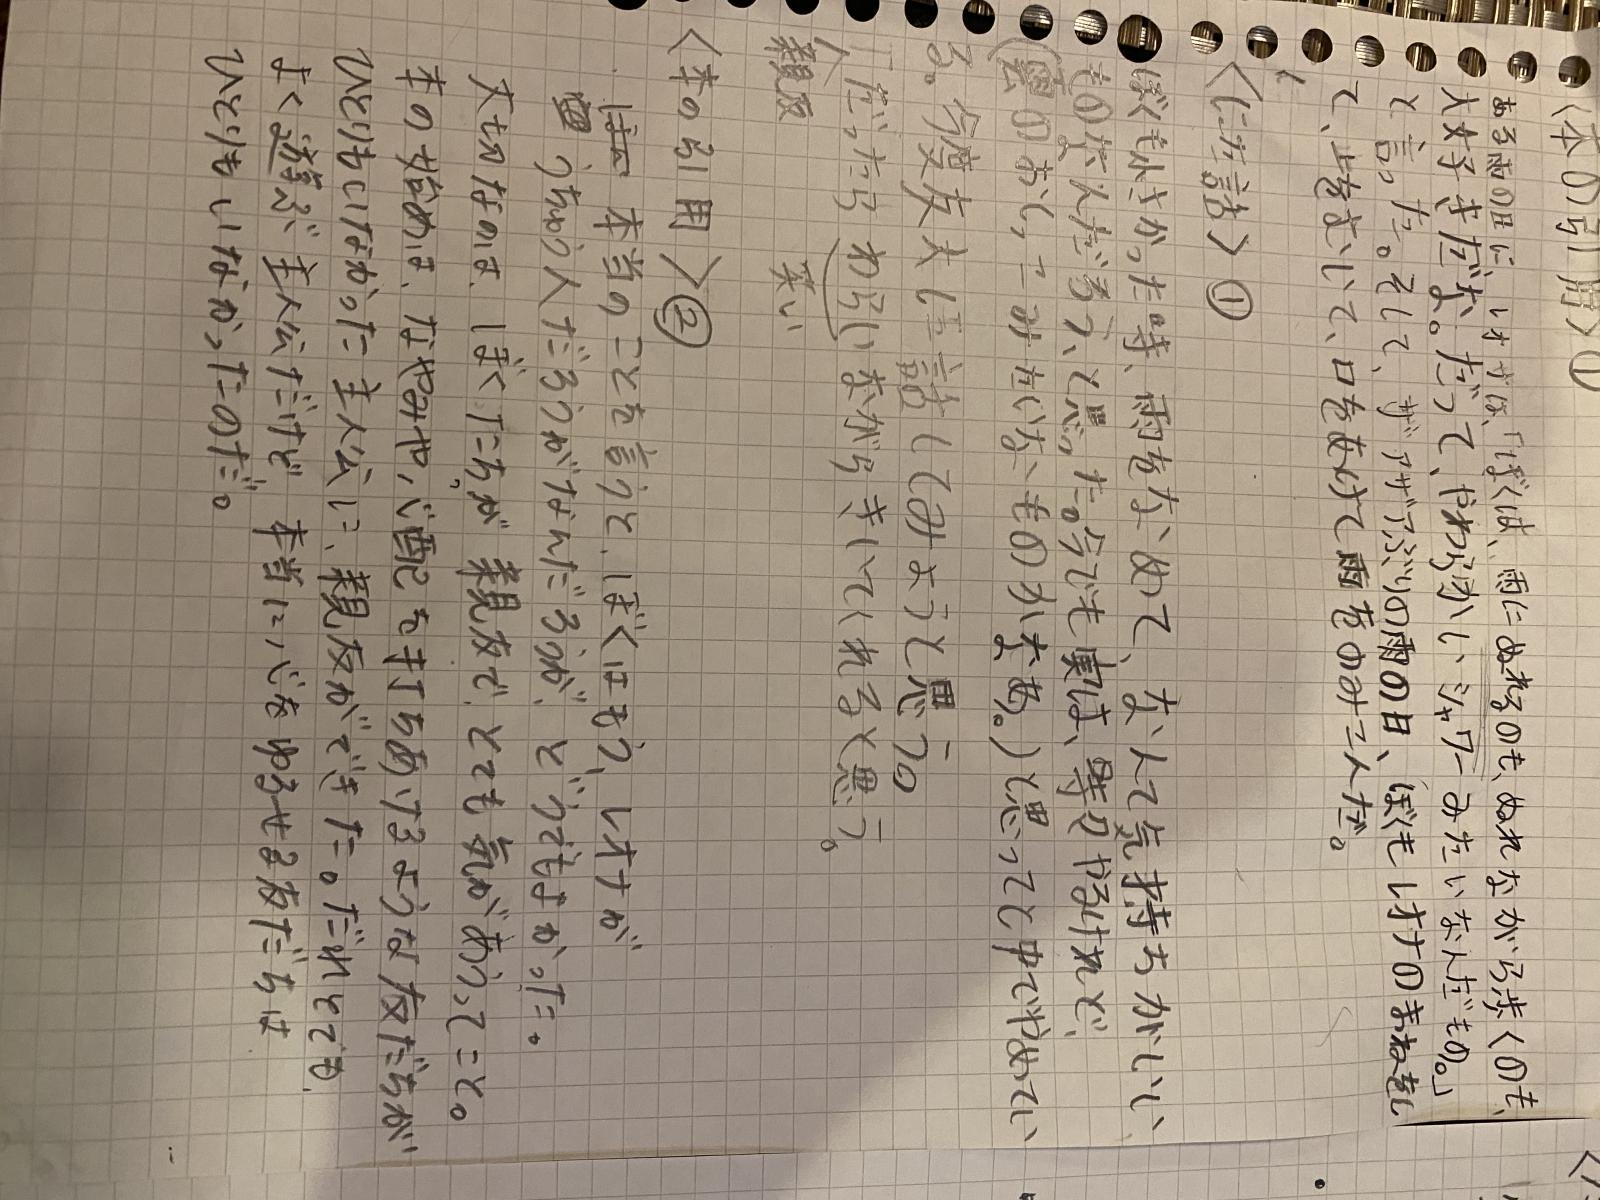 〈本の引用〉①
ある雨の日に、レオナは、「ぼくは、雨にぬれるのも、ぬれながら歩くのも、
大好きだな。だって、やわらかいシャワーみたいなんだもの。」
と言った。そして、ザアザアぶりの雨の日、ぼくもレオナのまねをし
て、上をむいて、口をあけて雨をのみこんだ。
〈にた話〉①
ぼくも小さかった時、雨をなめて、なんて気持ちがいい
ものなんだろう、と思った。今でも実は、時々やるけれど、
(雲のおしっこみたいなものかなあ。)と思ってと中でやめてい
る。今度友夫に話してみようと思う。
「だったらわらいながらきいてくれると思う。
親友 笑い
〈本の引用〉②
本当のことを言うと、ぼくはもう、レオナが
うちゅう人だろうがなんだろうが、どうでもよかった。
大切なのは、ぼくたちが親友で、とても気があうってこと。
本の始めは、なやみや心配を打ちあけるような友だちが
ひとりもいなかった主人公に、親友ができた。だれとでも
よく遊ぶ主人公だけど、本当に心をゆるせる友だちは
ひとりもいなかったのだ。